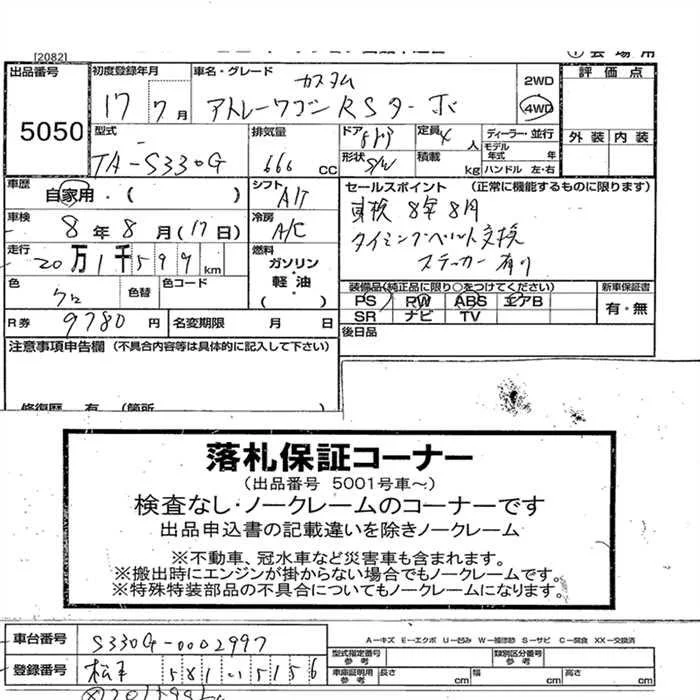 [2082]
出品番号
5050
初度登録年月
17 7月
車名・グレード
カスタム
アトレーワゴン RSターボ
2WD
4WD
評価点
外装 内装
型式
TA-S330G
排気量
666 CC
ドア
形状 S/W
定員 4人
積載 kg
ディーラー・並行
モデル年式 年
ハンドル 左・右
車歴
自家用・( )
シフト
A/T
車検
8年 8月 (17日)
冷房
A/C
走行
20万1千599km
燃料
ガソリン・軽油
( )
色
クロ
色替
色コード
R券 9780円
名変期限 月 日
セールスポイント (正常に機能するものに限ります)
車検 8年8月
タイミングベルト交換
ステッカー有り
装備品(純正品に限り○をつけてください)
PS PW ABS エアB
SR ナビ TV
新車保証書
有・無
後日品
注意事項申告欄 (不具合内容等は具体的に記入して下さい)
修復歴 有 (箇所
落札保証コーナー
(出品番号 5001号車〜)
検査なし・ノークレームのコーナーです
出品申込書の記載違いを除きノークレーム
※不動車、冠水車など災害車も含まれます。
※搬出時にエンジンが掛からない場合でもノークレームです。
※特殊特装部品の不具合についてもノークレームになります。
車台番号 S330G-0002997
登録番号 松本 581 い 5156
A−キズ E−エクボ U−凹み W−補修跡 S−サビ C−腐食 XX−交換済
型式指定番号 参考
類別区分番号 参考
車庫証明用 参考
長さ cm
幅 cm
高さ cm